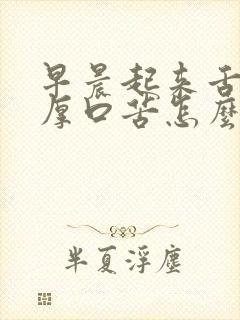 早晨起来舌
厚口苦怎麽
半夏浮塵